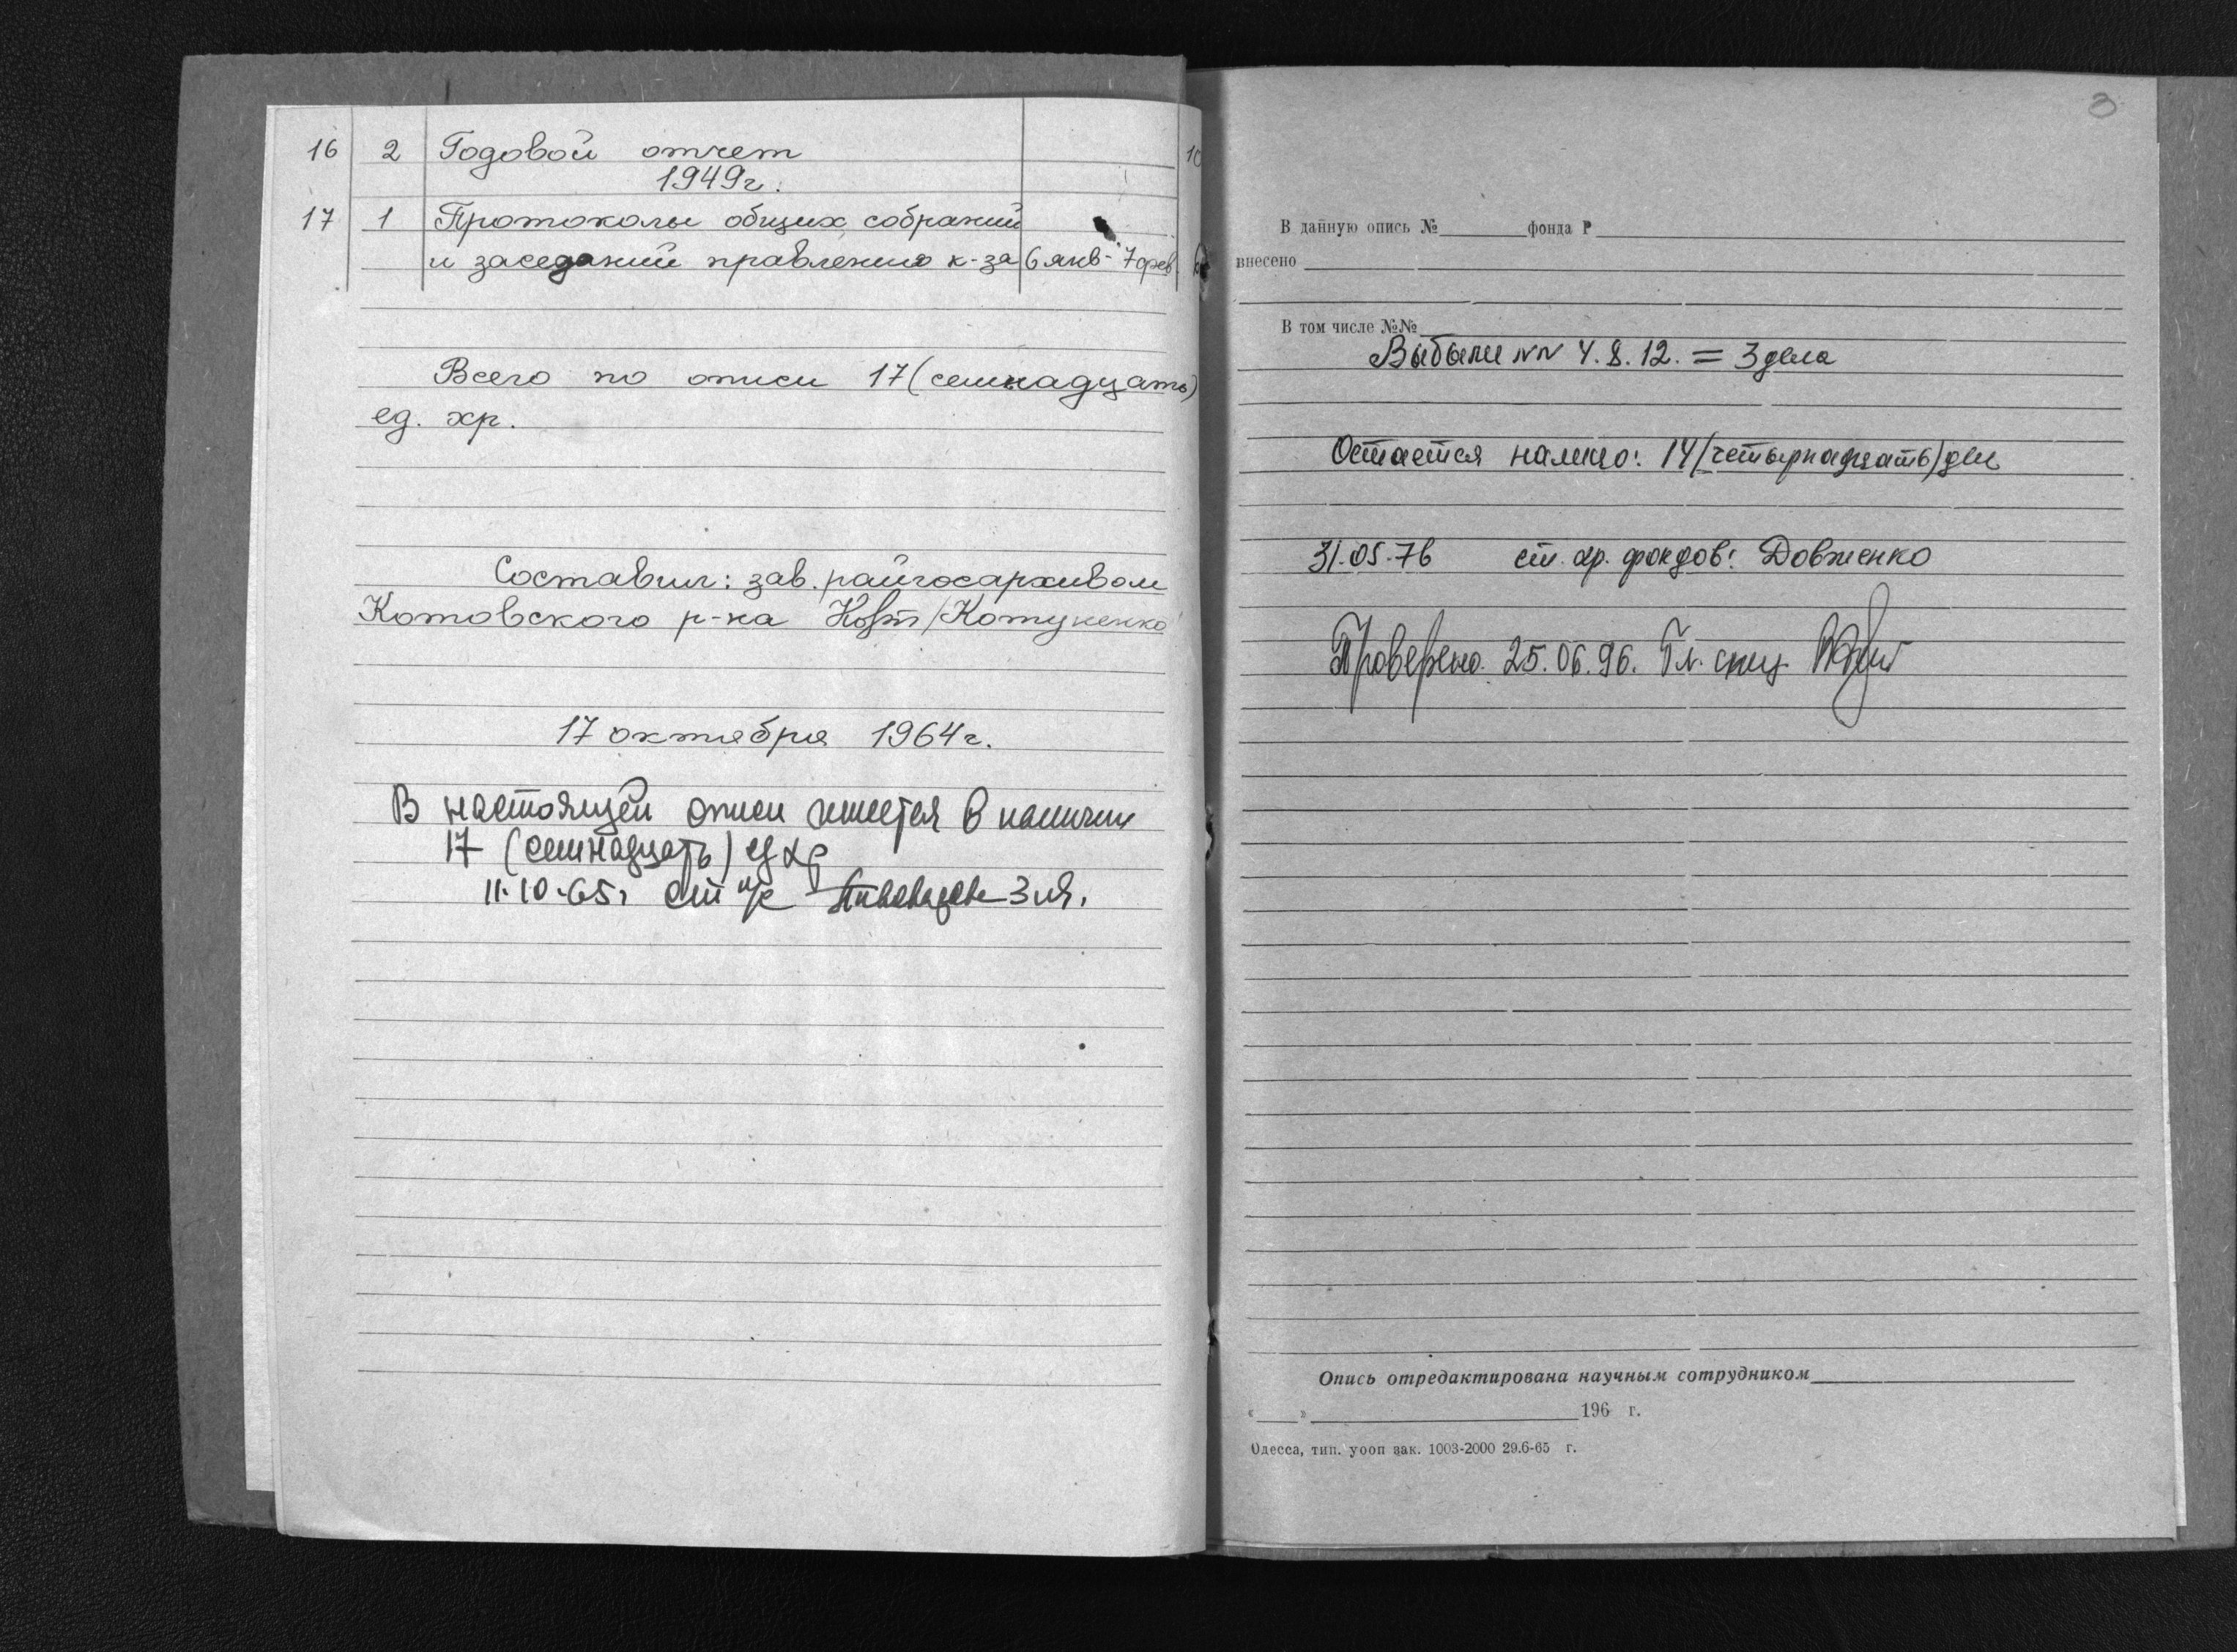 16 2 Годовой отчет 10
1949г.
17 1 Протоколы общих собраний
и заседаний правления к-за 6 янв- 7 фев.
Всего по описи 17 (семнадцать)
ед. хр.
Составил: зав. райгосархивом
Котовского р-на /Котуненко
17 октября 1964г.
В настоящей описи имеется в наличии
17 (семнадцать) ед хр
11.10.65г ст н/с
3
В данную опись № фонда Р
внесено
В том числе №№
Выбыли NN 4. 8. 12. = 3 дела
Остается налицо: 14 (четырнадцать) дел
31.05.76 ст. хр. фондов: Довженко
Проверено 25.06.96. Гл. спец.
Опись отредактирована научным сотрудником
« » 196 г.
Одесса, тип. уооп зак. 1003-2000 29.6-65 г.